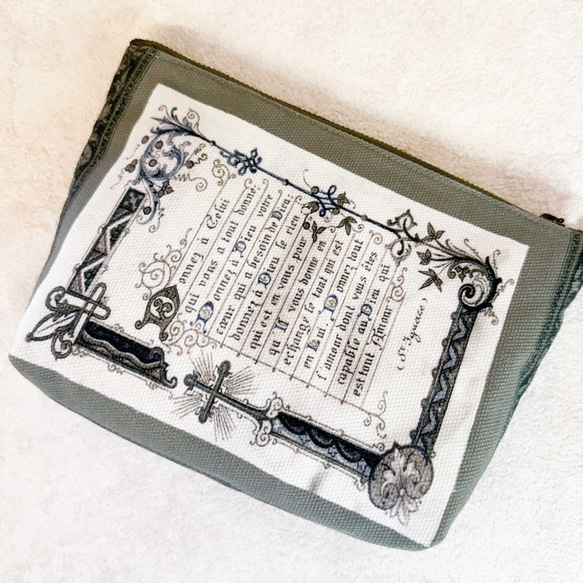 Donnez à Celui
qui vous a tout donné:
Donnez à Dieu votre
cœur qui a besoin de Dieu:
donnez à Dieu le rien
qui est en vous pour
qu'Il vous donne en
échange le tout qui est
en Lui. Donnez tout
l'amour dont vous êtes
capable au Dieu qui
est tout Amour.
(St. Ignace)